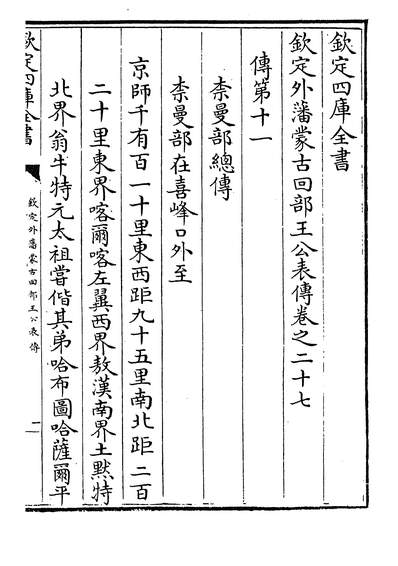 欽定四庫全書
欽定外藩蒙古回部王公表傳卷之二十七
傳第十一
柰曼部總傳
柰曼部在喜峰口外至
京師千有百一十里東西距九十五里南北距二百
二十里東界喀爾喀左翼西界敖漢南界土默特
北界翁牛特元太祖嘗偕其弟哈布圖哈薩爾平
欽定四庫全書
欽定外藩蒙古回部王公表傳